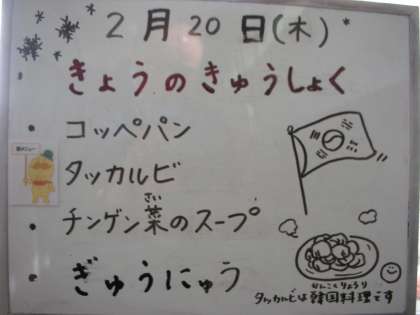 2月20日(木)
きょうのきゅうしょく
・コッペパン
・タッカルビ
・チンゲン菜のスープ
さい
・ぎゅうにゅう
かんこくりょうり
タッカルビは韓国料理です